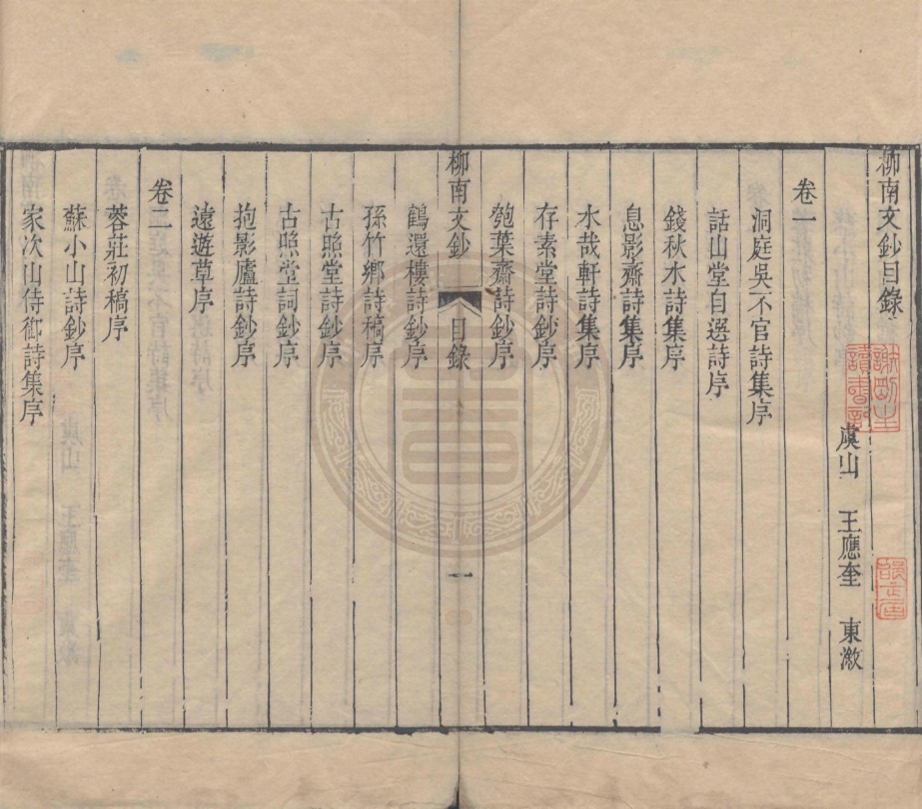 柳南文鈔目錄
虞山 王應奎 東溆
卷一
洞庭吳不官詩集序
話山堂自選詩序
錢秋水詩集序
息影齋詩集序
水哉軒詩集序
存素堂詩鈔序
匏葉齋詩鈔序
柳南文鈔 目錄 一
鶴還樓詩鈔序
孫竹鄉詩稿序
古照堂詩鈔序
古照堂詞鈔序
抱影廬詩鈔序
遠遊草序
卷二
蓉莊初稿序
蘇小山詩鈔序
家次山侍御詩集序